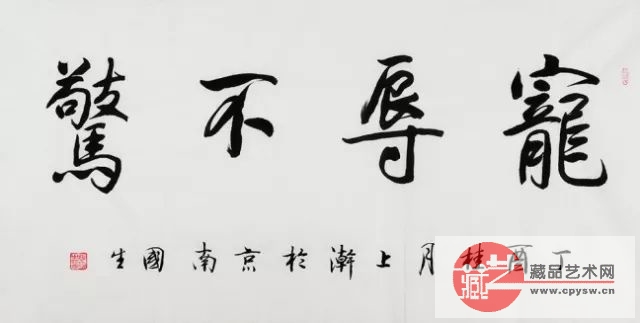 寵辱不驚
丁酉桂月上澣於京南國生
藏品艺术网
www.cpysw.cn